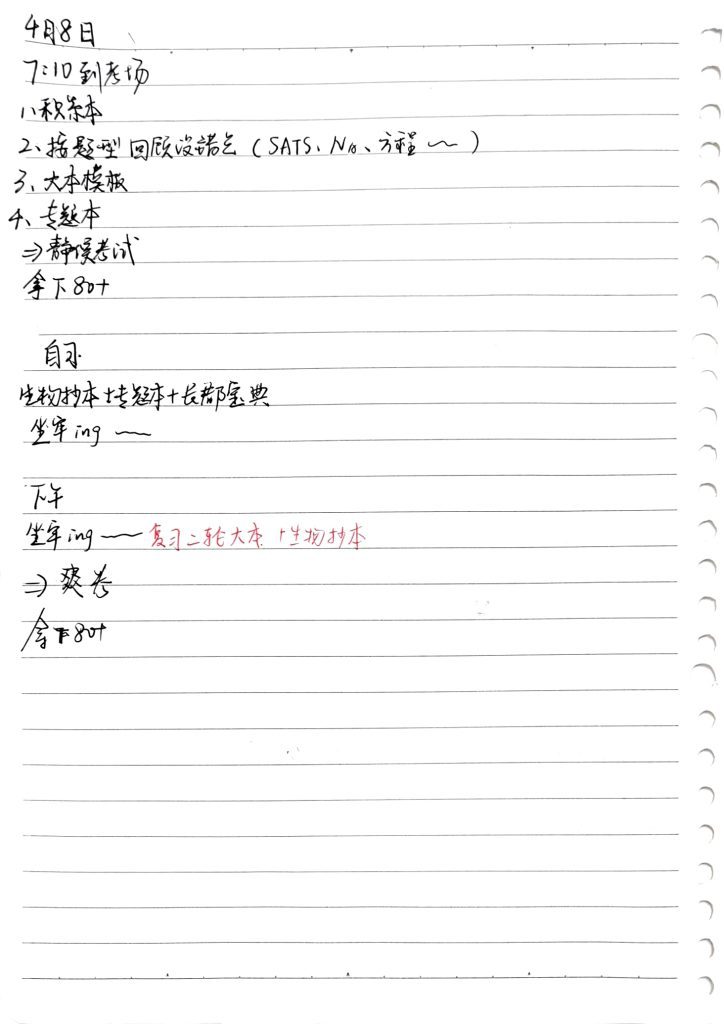 4月8日
7:10到考场
1、积累本
2、按题型回顾设错点（SATS、NA、方程～）
3、大本模板
4、专题本
⇒静候考试
拿下80+
自习
生物抄本+专题本+长郡宝典
坐牢ing～
下午
坐牢ing～复习二轮大本+生物抄本
⇒爽卷
拿下80+